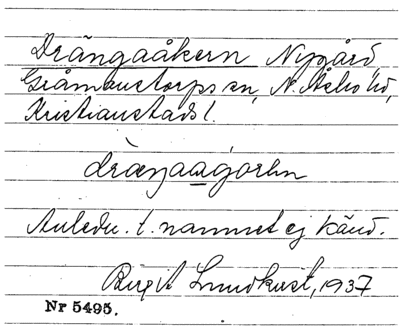 Drängaåkern Nygård,
Gråmanstorps sn, N. Åsbo hd,
Kristianstads l.
Anledn. t. namnet ej känd.
Birgit Lundkvist, 1937
Nr 5495.